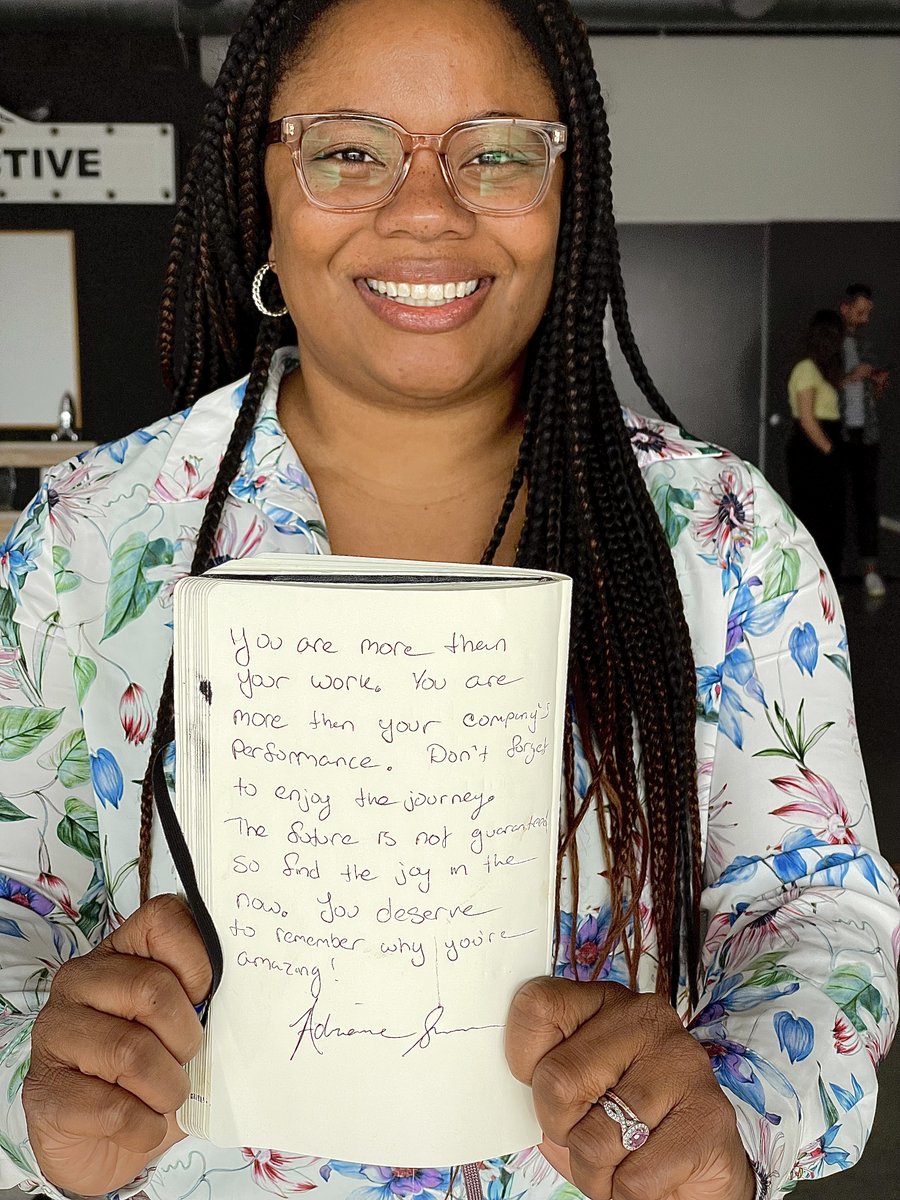 STIVE
You are more then
your work. You are
more then your company's
performance. Don't forget
to enjoy the journey.
The future is not guaranteed
so find the joy in the
now. You deserve
to remember why you're
amazing!
Adrianne